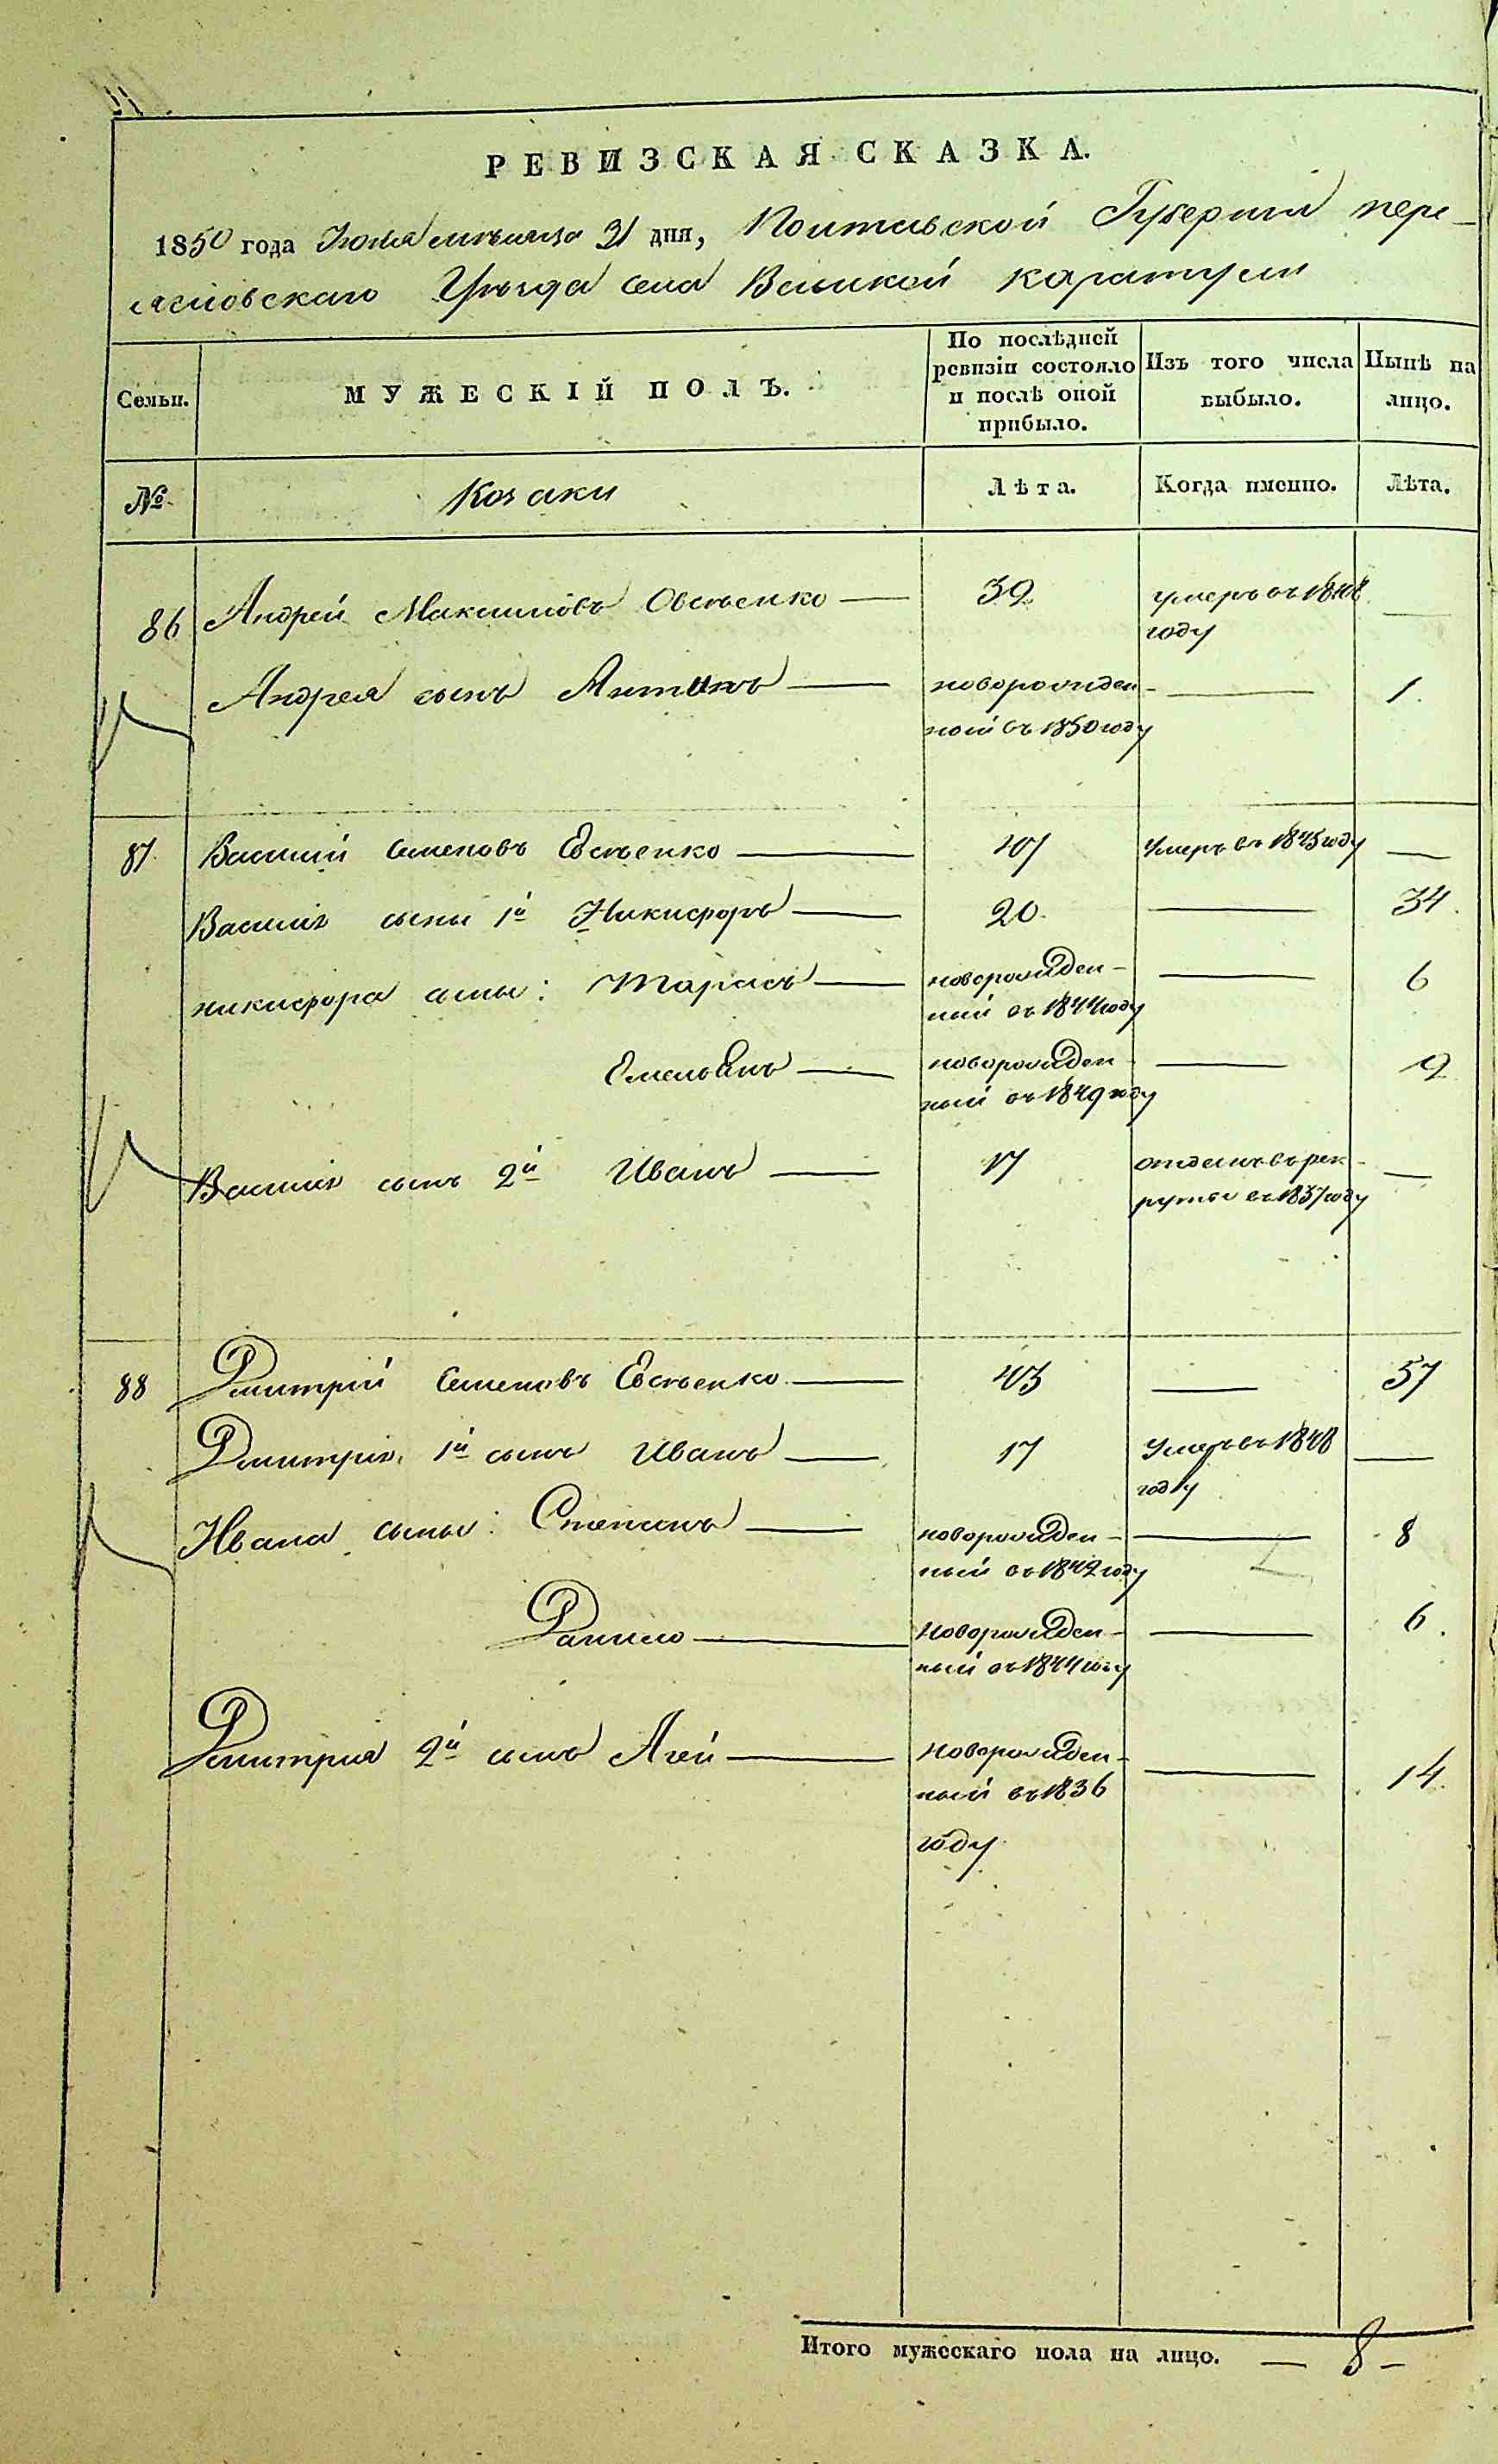 РЕВИЗСКАЯ СКАЗКА.
1850 года Июня мѣсяца 21 дня, Полтавской Губерніи пере-
яславскаго Уѣзда села Великой каратули
Семьи.
МУЖЕСКІЙ ПОЛЪ.
По послѣдней ревизіи состояло и послѣ оной прибыло.
Изъ того числа выбыло.
Нынѣ на лицо.
№
Козаки
Лѣта.
Когда именно.
Лѣта.
86 Андрей Максимовъ Овсѣенко — 32 умеръ въ 1848 —
году
Андрея сынъ Антинъ — новорожден- — 1.
ный въ 1850 году
87. Василій Семеновъ Евсѣенко — 47 Умеръ въ 1845 году —
Василія сыны 1й Никифоръ — 20. — 34.
никифора сыны: Тарасъ — новорожден- — 6
ный въ 1844 году
Емельянъ — новорожден- — 2
ный въ 1849 году
Василія сынъ 2й Иванъ — 17 отданъ въ рек- —
руты въ 1837 году
88 Дмитрій Семеновъ Евсѣенко. — 43 — 57
Дмитрія 1й сынъ Иванъ — 17 Умеръ въ 1848 —
году
Ивана сыны: Степанъ — новорожден- — 8
ный въ 1842 году
Данило — Новорожден- — 6.
ный въ 1844 году
Дмитрия 2й сынъ Агей — Новорожден- — 14.
ный въ 1836
году
Итого мужескаго пола на лицо. — 8 —